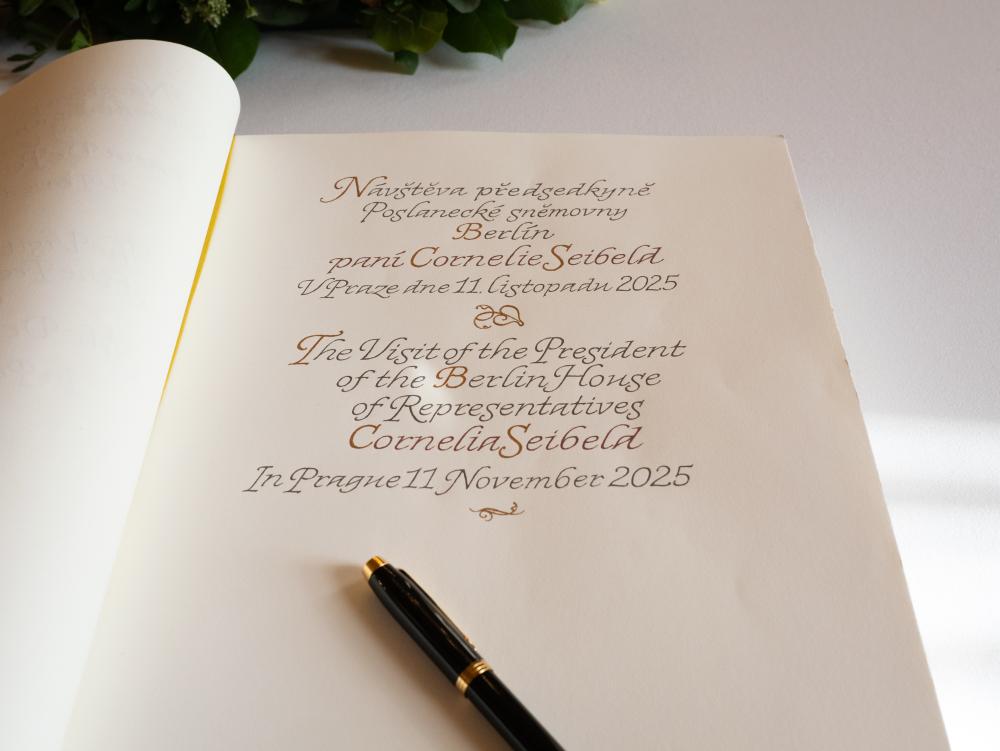 Návštěva předsedkyně
Poslanecké sněmovny
Berlín
paní Cornelie Seibeld
V Praze dne 11. listopadu 2025
The Visit of the President
of the Berlin House
of Representatives
Cornelia Seibeld
In Prague 11 November 2025